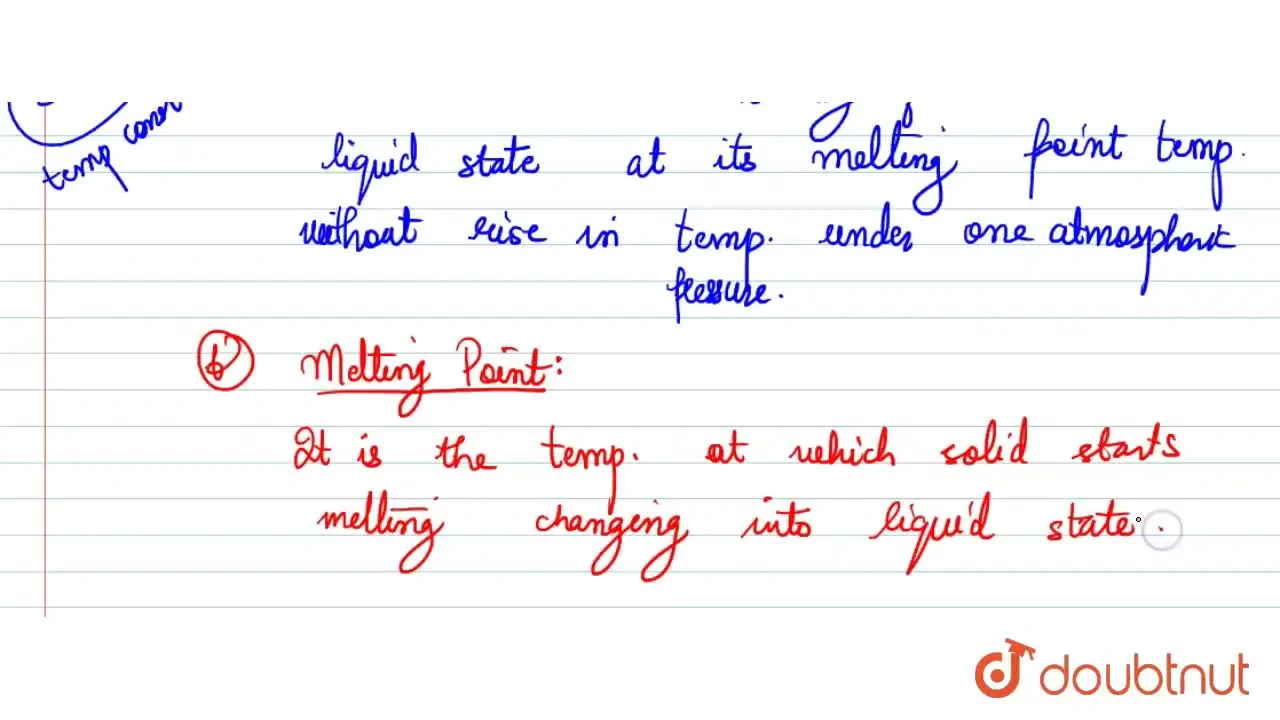 temp const
liquid state at its melting point temp.
without rise in temp. under one atmospheric
pressure.
b Melting Point:
It is the temp. at which solid starts
melting changing into liquid state.
doubtnut